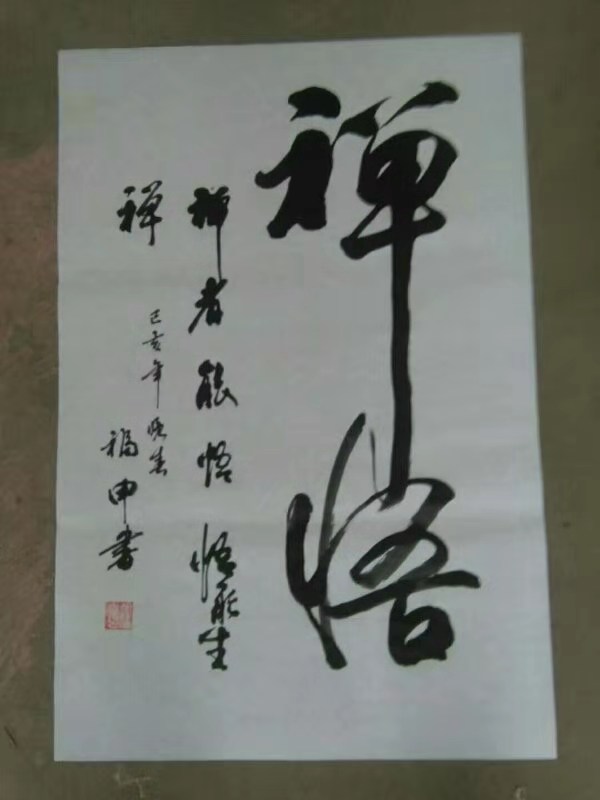 禅悟
禅者能悟悟能生
禅
己亥年晚春
福申书